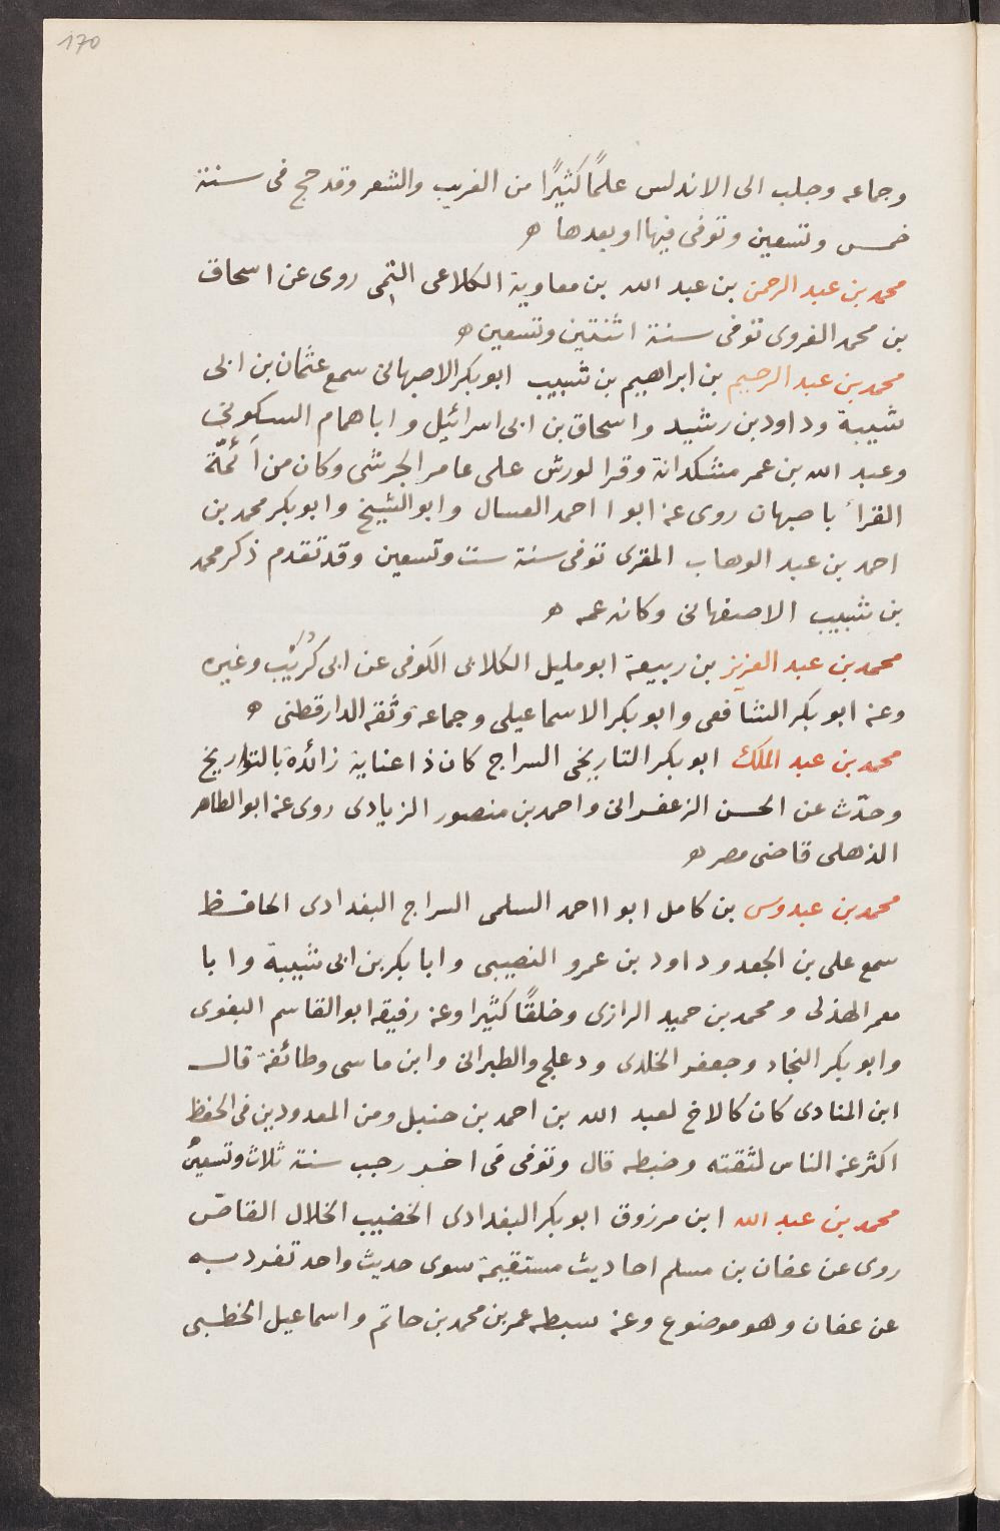 170
وجماعه وجلب الى الاندلس علمًا كثيرًا من الغريب والشعر وقد حج فى سنة
خمس وتسعين وتوفى فيها اوبعدها ه
محمد بن عبد الرحمن بن عبد الله بن معاوية الكلاعى روى عن اسحاق
بن محمد الفروى توفى سنة اثنتين وتسعين ه
محمد بن عبد الرحيم بن ابراهيم بن شبيب ابو بكر الاصبهانى سمع عثمان بن ابى
شيبة وداود بن رشيد واسحاق بن ابى اسرائيل وابا همام السكونى
وعبد الله بن عمر مشكدانة وقرا لورش على عامر الجرشى وكان من أئمّة
القرأ باصبهان روى عنه ابوا احمد العسال وابو الشيخ وابو بكر محمد بن
احمد بن عبد الوهاب المقرى توفى سنة ست وتسعين وقد تقدم ذكر محمد
بن شبيب الاصفهانى وكانه عمه ه
محمد بن عبد العزيز بن ربيعة ابو مليل الكلابى الكوفى عن ابى كُرَيْب وغيره
وعنه ابو بكر الشافعى وابو بكر الاسماعيلى وجماعة وثقه الدارقطنى ه
محمد بن عبد الملك ابو بكر التاريخى السراج كان ذا عناية زائدة بالتواريخ
وحدّث عن الحسن الزعفرانى واحمد بن منصور الزيادى روى عنه ابو الطاهر
الذهلى قاضى مصر ه
محمد بن عبدوس بن كامل ابو ااحمد السلمى السراج البغدادى الحافظ
سمع على بن الجعد وداود بن عمرو الضبى وابا بكر بن ابى شيبة وابا
معمر الهذلى ومحمد بن حميد الرازى وخلقًا كثيرا وعنه رفيقه ابو القاسم البغوى
وابو بكر النجاد وجعفر الخلدى ودعلج والطبرانى وابن ماسى وطائفة قال
ابن المنادى كان كالاخ لعبد الله بن احمد بن حنبل ومن المعدودين فى الحفظ
اكثر عنه الناس لثقته وضبطه قال وتوفى فى اخر رجب سنة ثلاث وتسعين
محمد بن عبد الله ابن مرزوق ابو بكر البغدادى الخضيب الخلال القاصّ
روى عن عفان بن مسلم احاديث مستقيمة سوى حديث واحد تفرد به
عن عفان وهو موضوع وعنه سبطه عمر بن محمد بن حاتم واسماعيل الخطبى